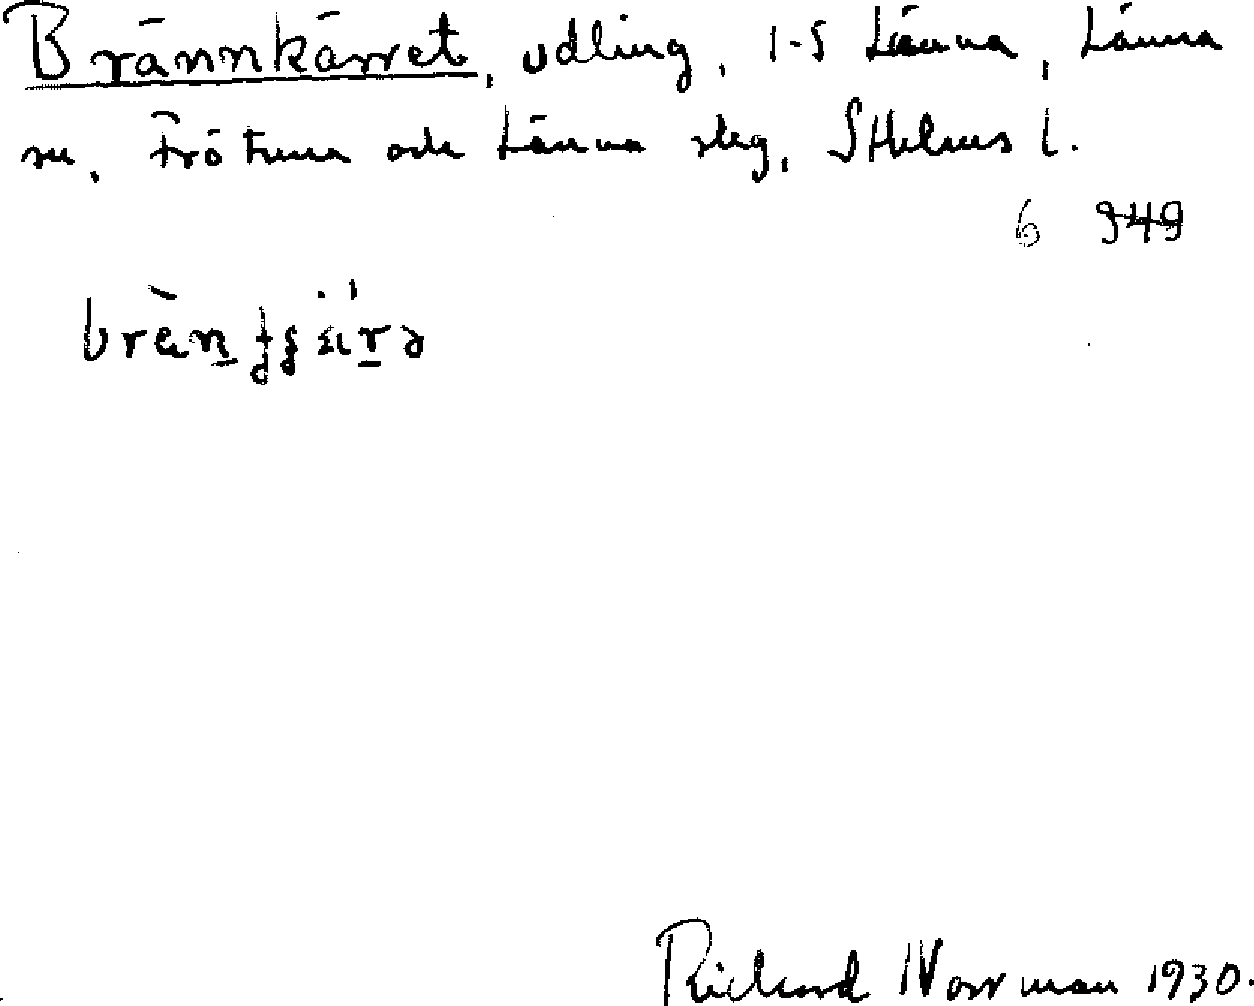 Brännkärret, odling, 1-5 Länna, Länna
sn, Frötuna och Länna skg, Sthlms l.
6 949
Rickard Norrman 1930.